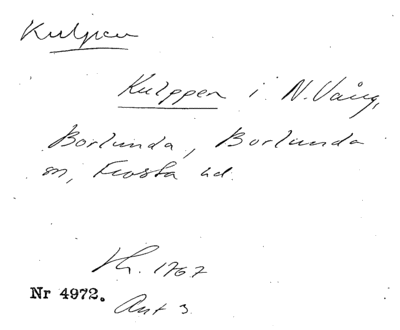 Kulpen
Kulppen i N. Vång,
Borlunda, Borlunda
sn, Frosta hd.
Lh. 1767
Nr 4972.
Akt 3